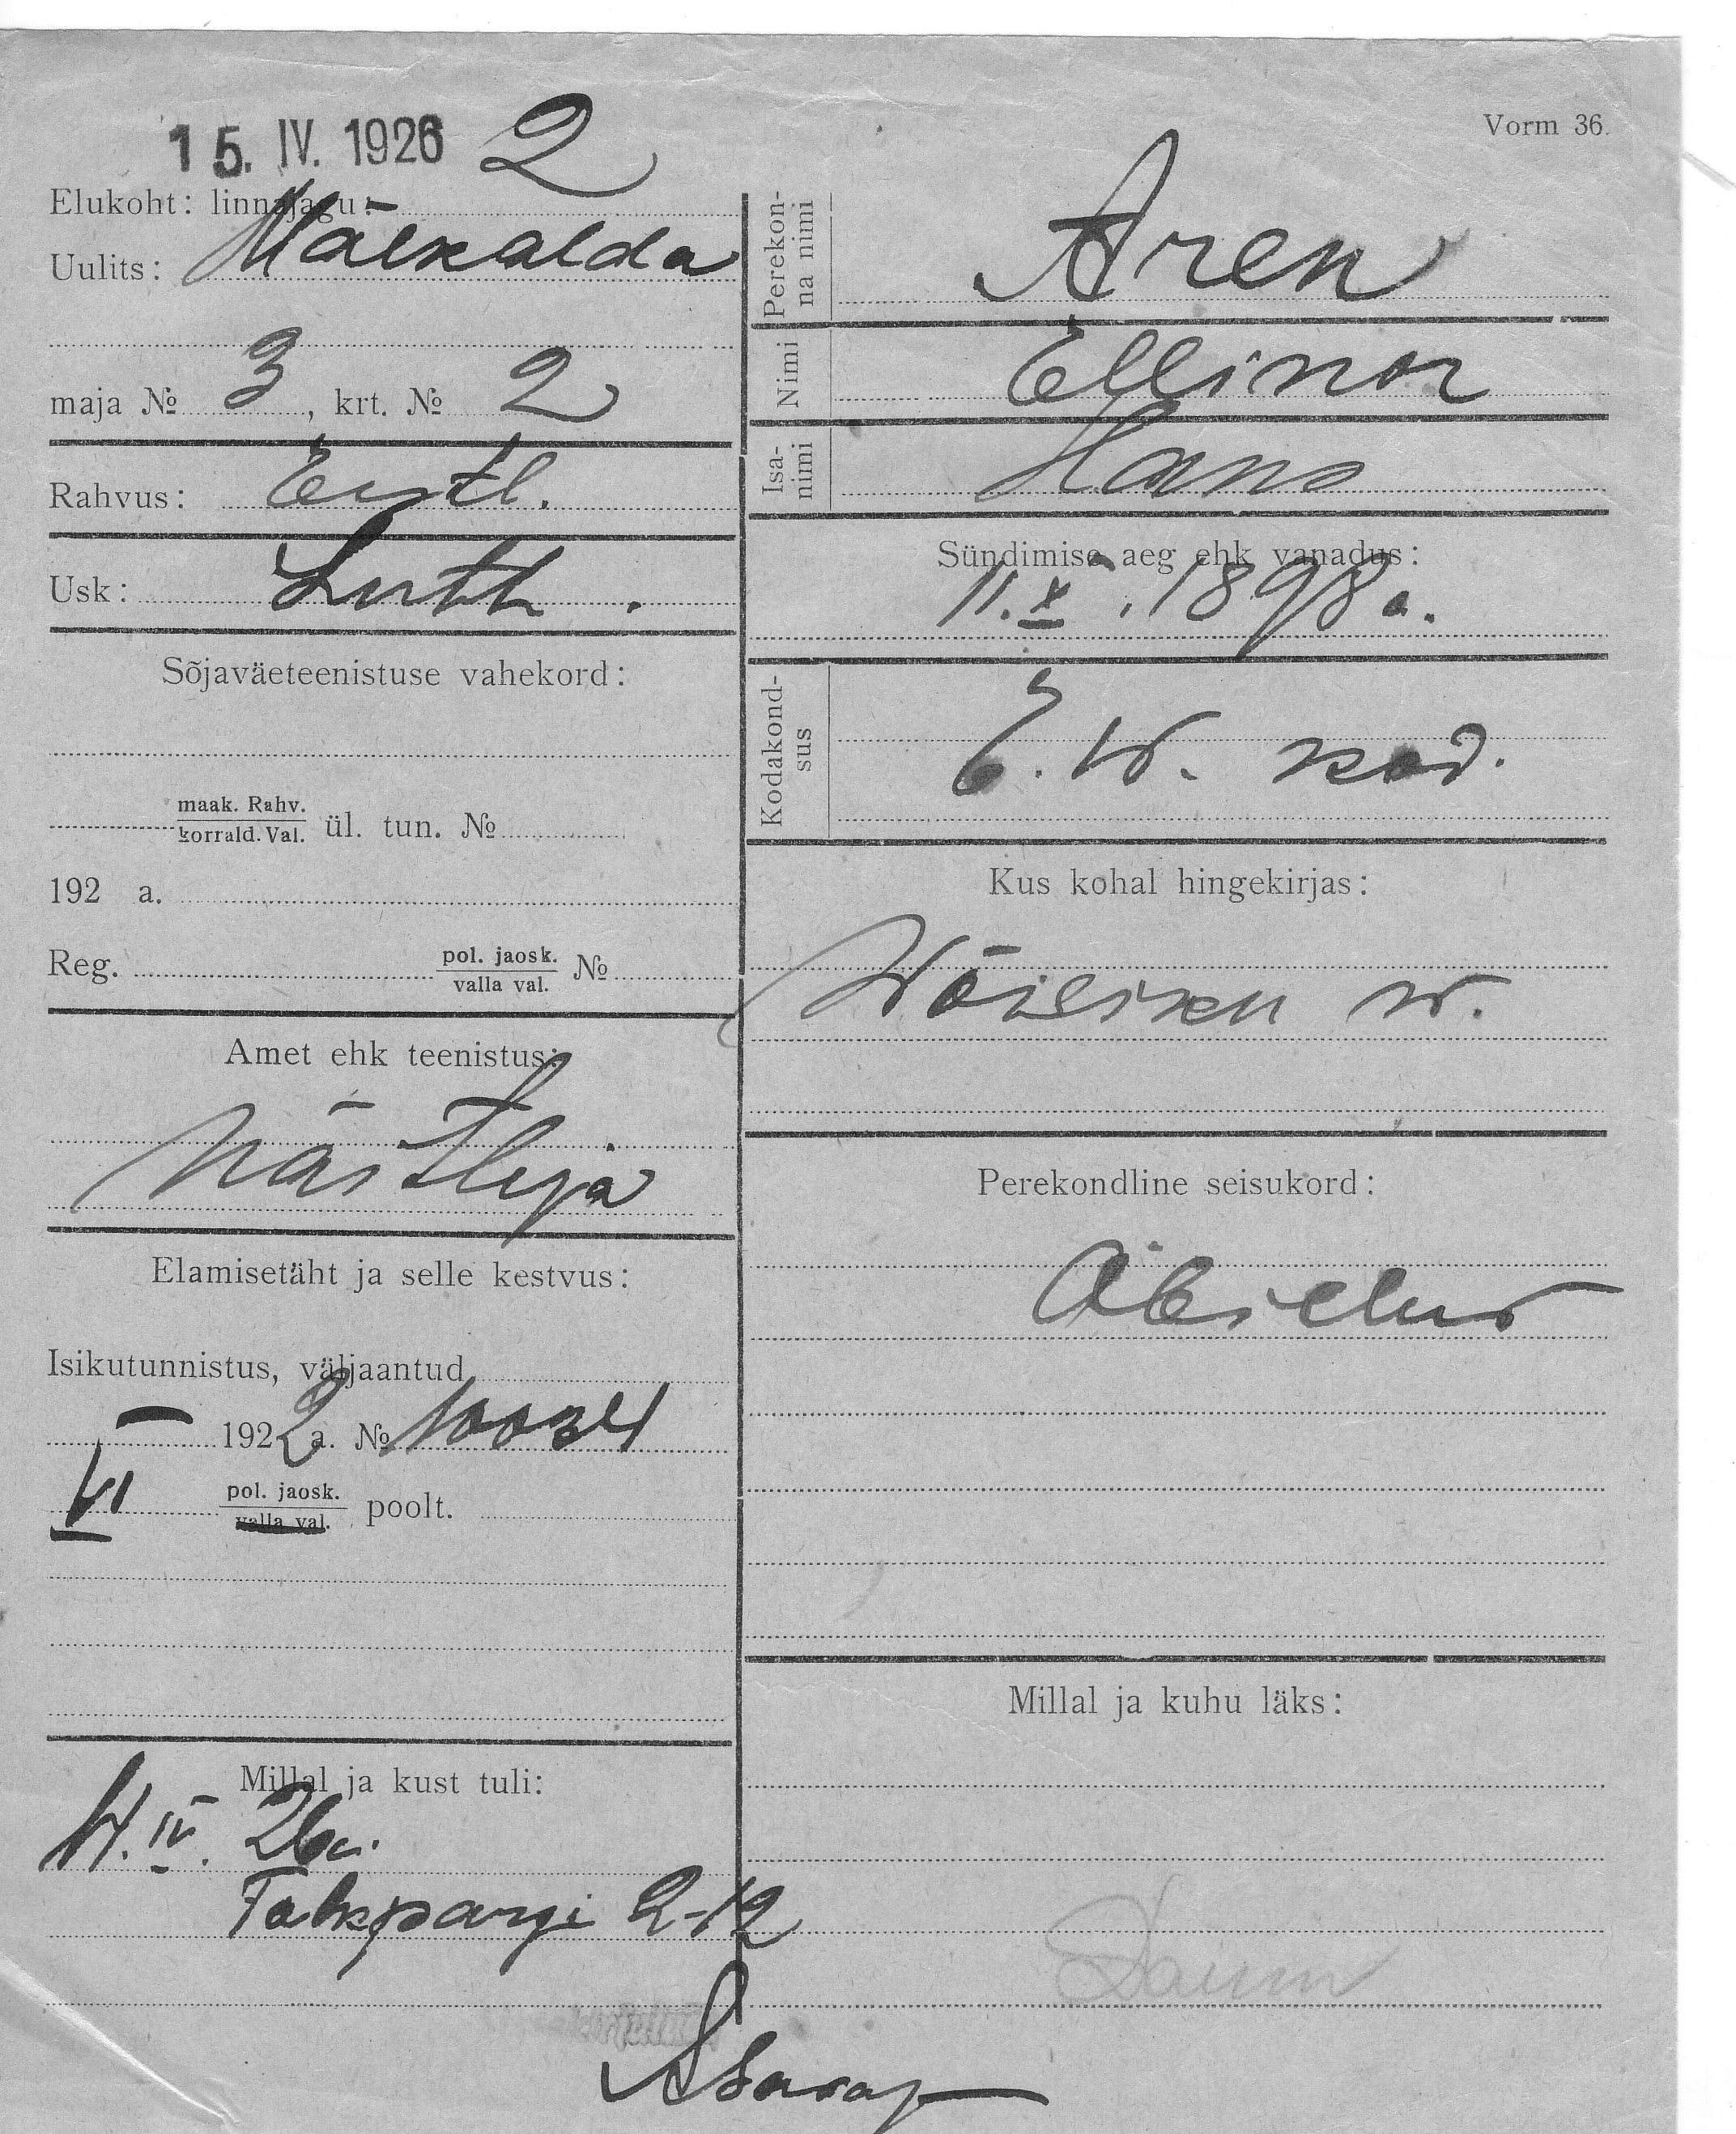 Vorm 36.
15. IV. 1926 2
Elukoht: linnajagu:
Uulits: Mäekalda
maja № 3, krt. № 2
Rahvus: Eestl.
Usk: Luth.
Sõjaväeteenistuse vahekord:
maak. Rahv.
korrald. Val. ül. tun. №
192 a.
Reg. pol. jaosk. №
valla val.
Amet ehk teenistus:
Näitleja
Elamisetäht ja selle kestvus:
Isikutunnistus, väljaantud
192 2 a. №
VI pol. jaosk. poolt.
valla val.
Millal ja kust tuli:
IV. 26 a.
Falkpargi 2-12
Perekon-
na nimi
Aren
Nimi Ellinor
Isa-
nimi
Hans
Sündimise aeg ehk vanadus:
11. X. 1898 a.
Kodakond-
sus
E. W. kod.
Kus kohal hingekirjas:
Wõisiku w.
Perekondline seisukord:
Abielus
Millal ja kuhu läks: